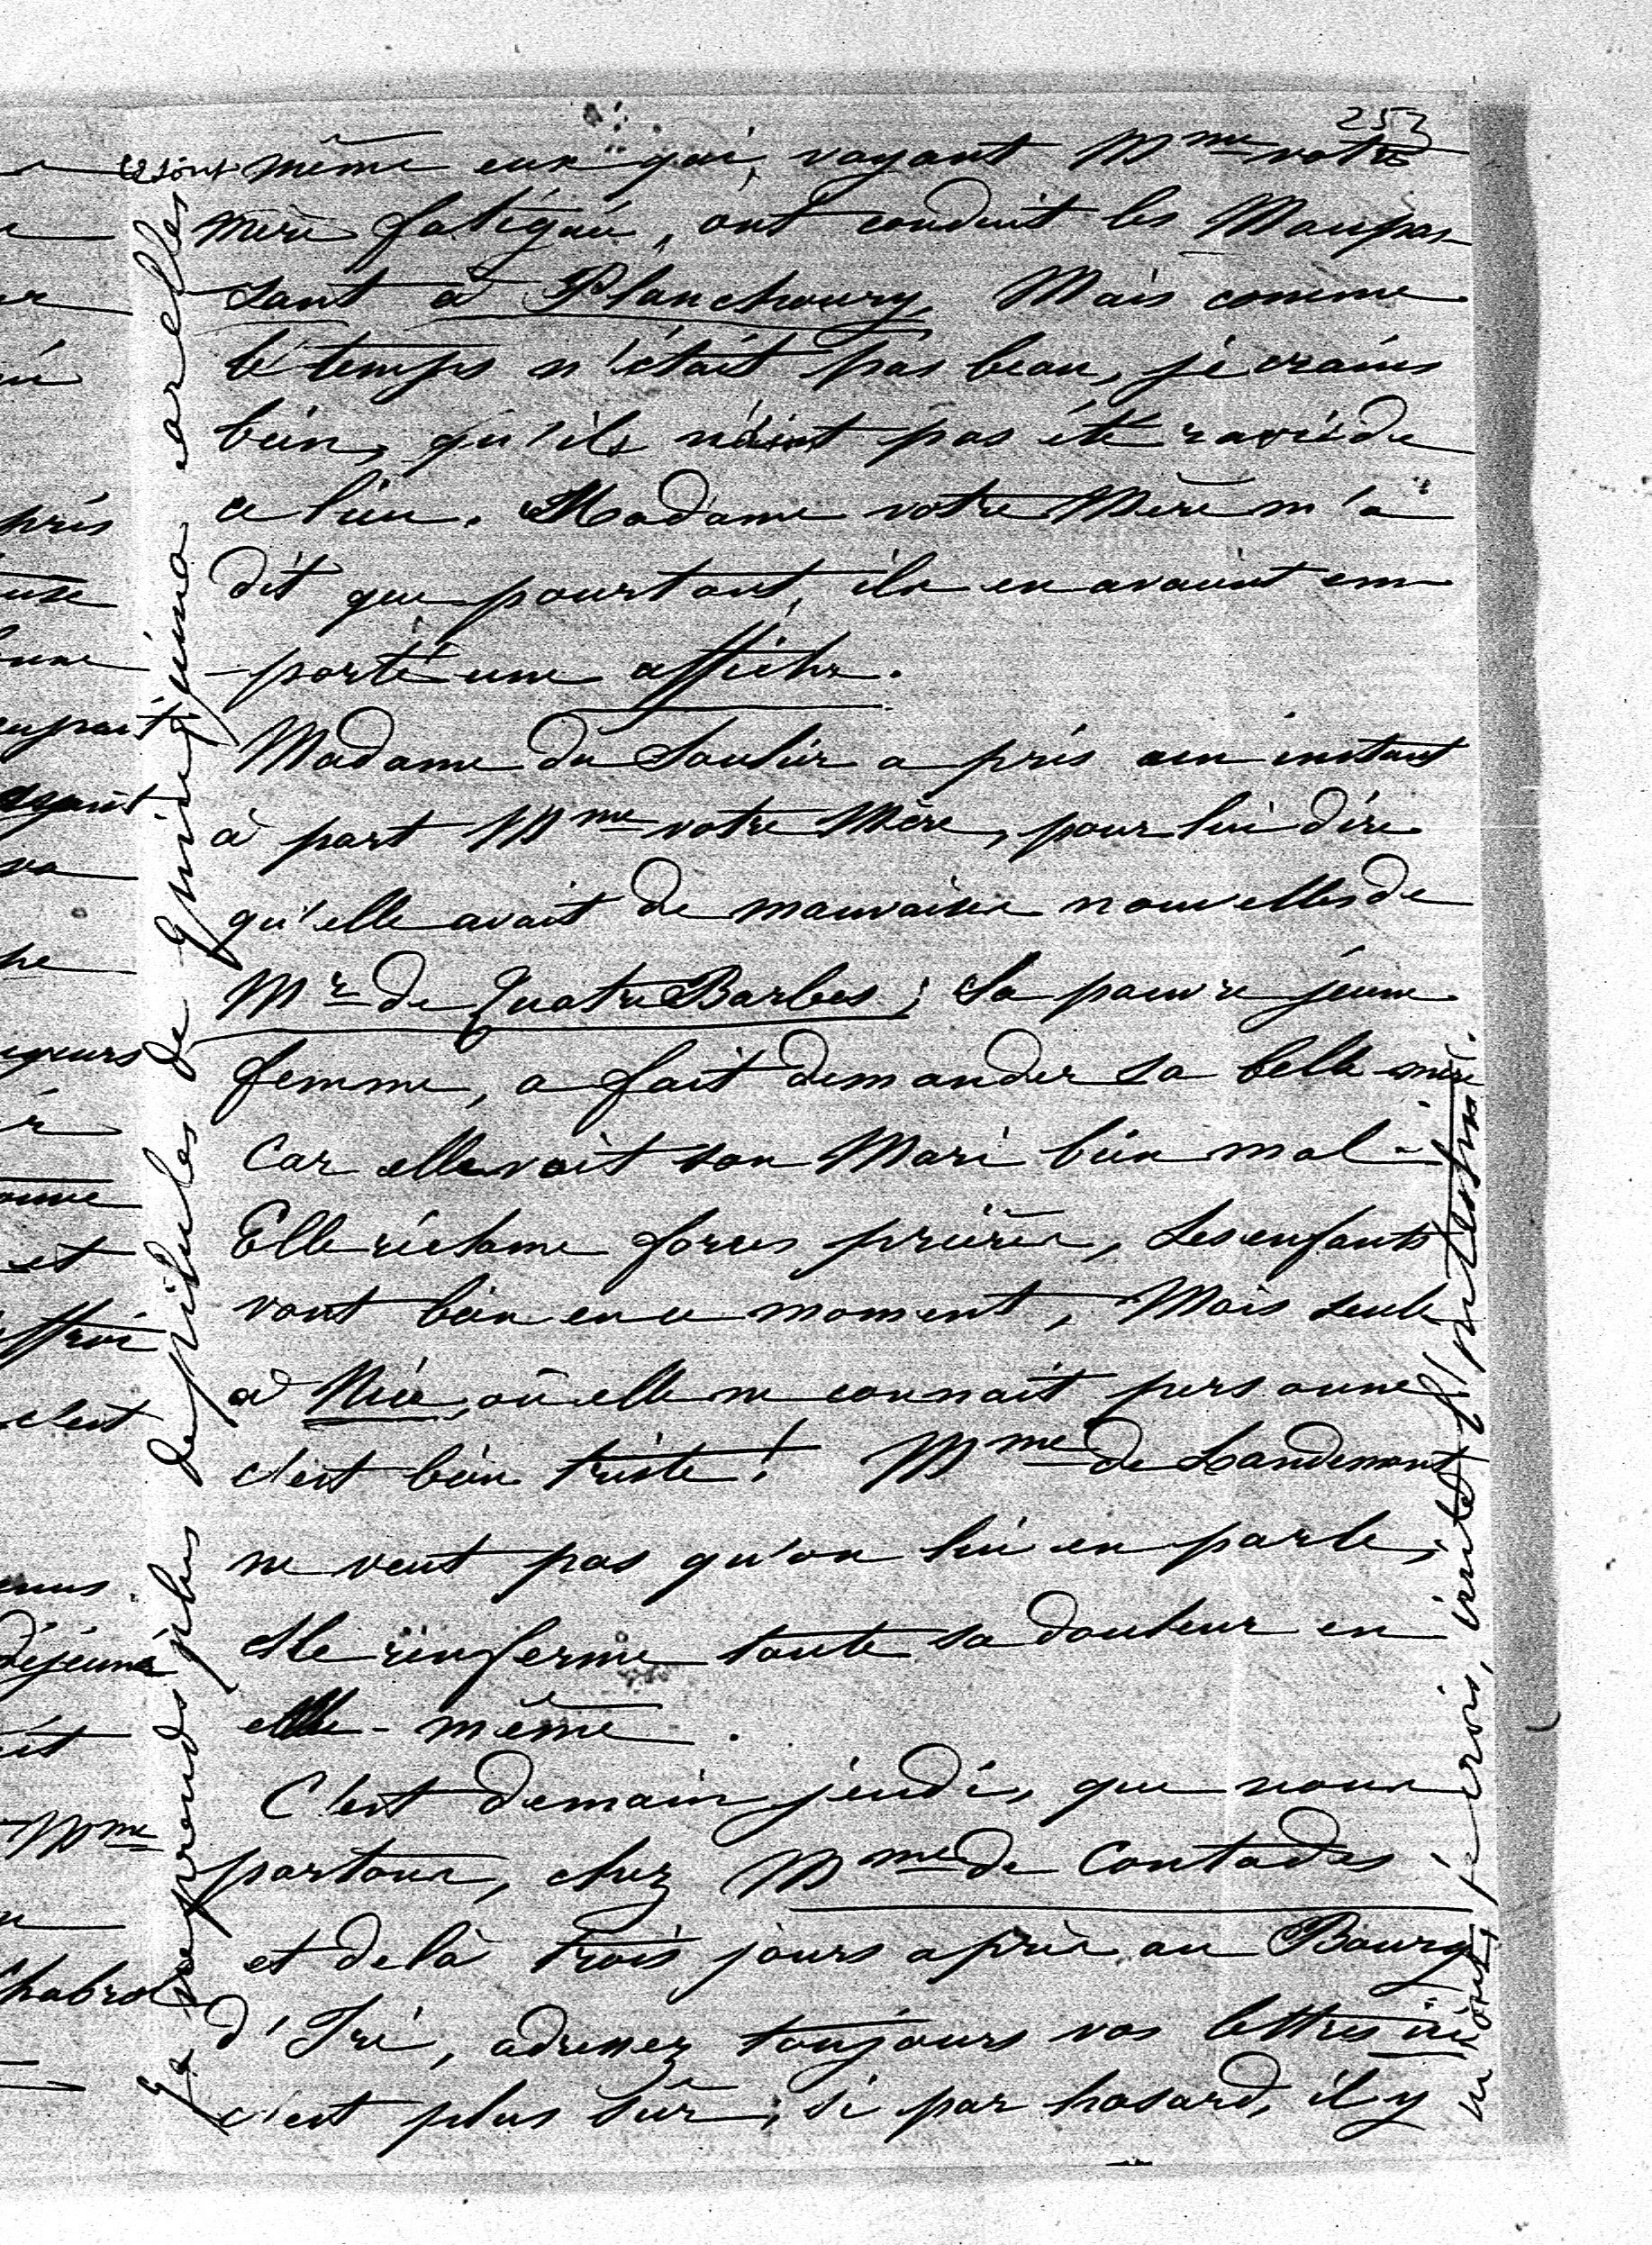 253
ce sont même eux qui, voyant Mme votre
mère fatiguée, ont conduit les Maupas-
sant à Planchoury, Mais comme
le temps n'était pas beau, je crains
bien, qu'ils n'aient pas été ravis de
ce lieu. Madame votre Mère m'a
dit que pourtant, ils en avaient em
-porté une affiche.
Madame du Soulier a pris un instant
à part Mme votre Mère, pour lui dire
qu'elle avait de mauvaises nouvelles de
Mr de QuatreBarbes; Sa pauvre jeune
femme, a fait demander sa belle-mère
Car elle voit son Mari bien mal-
Elle réclame forces prières, Les enfants
vont bien en ce moment, Mais seule
à Nice, où elle ne connait personne
c'est bien triste! Mme de Landemont
ne veut pas qu'on lui en parle,
elle renferme toute sa douleur en
elle-même.
C'est demain jeudi, que nous
partons, chez Mme de Contades
et delà trois jours après au Bourg
d'Iré, adressez toujours vos lettres ici
c'est plus sûr; si par hasard, il y
Je ne prends plus de pilules de Quinquina car elles
m'ont, je crois, irrité l'intestin.
près
une
déjeuné
Mme
Chabrol
et
c'est